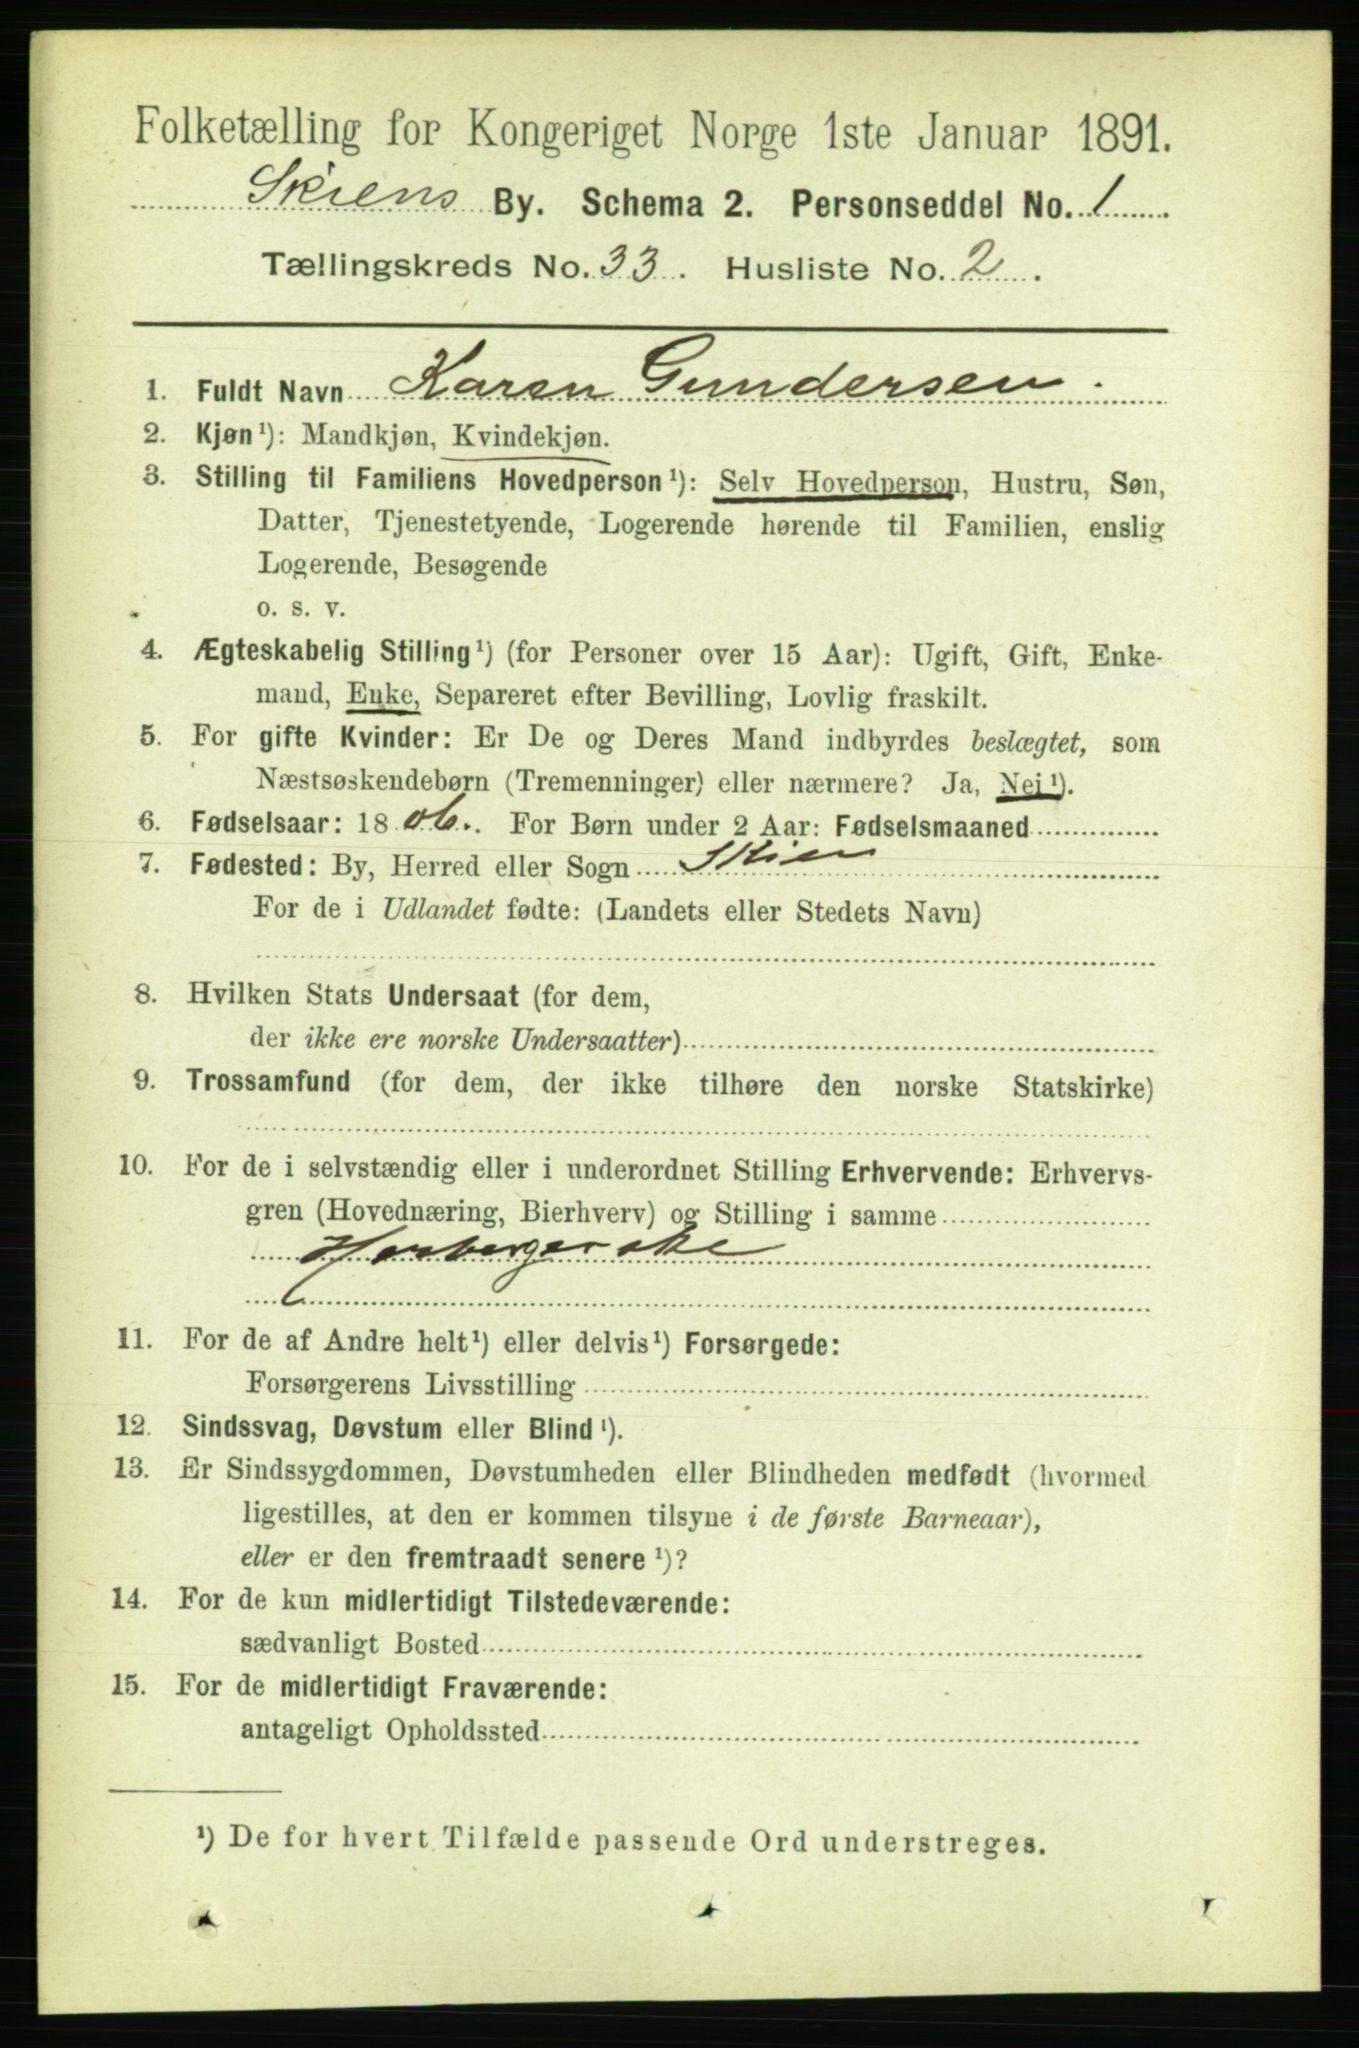 Folketælling for Kongeriget Norge 1ste Januar 1891.
Skiens By. Schema 2. Personseddel No. 1
Tællingskreds No. 33. Husliste No. 2.
1. Fuldt Navn Karen Gundersen.
2. Kjøn¹): Mandkjøn, Kvindekjøn.
3. Stilling til Familiens Hovedperson¹): Selv Hovedperson, Hustru, Søn,
Datter, Tjenestetyende, Logerende hørende til Familien, enslig
Logerende, Besøgende
o. s. v.
4. Ægteskabelig Stilling¹) (for Personer over 15 Aar): Ugift, Gift, Enke-
mand, Enke, Separeret efter Bevilling, Lovlig fraskilt.
5. For gifte Kvinder: Er De og Deres Mand indbyrdes beslægtet, som
Næstsøskendebørn (Tremenninger) eller nærmere? Ja, Nei¹).
6. Fødselsaar: 1806. For Børn under 2 Aar: Fødselsmaaned
7. Fødested: By, Herred eller Sogn Skien
For de i Udlandet fødte: (Landets eller Stedets Navn)
8. Hvilken Stats Undersaat (for dem,
der ikke ere norske Undersaatter)
9. Trossamfund (for dem, der ikke tilhøre den norske Statskirke)
10. For de i selvstændig eller i underordnet Stilling Erhvervende: Erhvervs-
gren (Hovednæring, Bierhverv) og Stilling i samme
Herbergerske
11. For de af Andre helt¹) eller delvis¹) Forsørgede:
Forsørgerens Livsstilling
12. Sindssvag, Døvstum eller Blind¹).
13. Er Sindssygdommen, Døvstumheden eller Blindheden medfødt (hvormed
ligestilles, at den er kommen tilsyne i de første Barneaar),
eller er den fremtraadt senere¹)?
14. For de kun midlertidigt Tilstedeværende:
sædvanligt Bosted
15. For de midlertidigt Fraværende:
antageligt Opholdssted
¹) De for hvert Tilfælde passende Ord understreges.